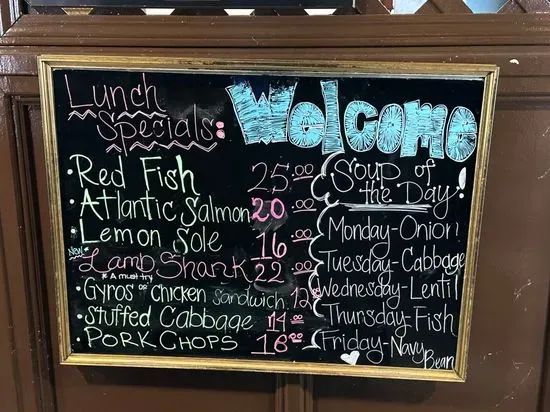 Lunch
Specials:
Welcome
• Red Fish 25.00
• Atlantic Salmon 20.00
• Lemon Sole 16.00
New*
Lamb Shank 22.00
* A must try
• Gyros or Chicken Sandwich. 12
• Stuffed Cabbage 14.00
• PORK CHOPS 16.00
Soup of
the Day!
Monday-Onion
Tuesday-Cabbage
Wednesday-Lentil
Thursday-Fish
Friday-Navy
Bean